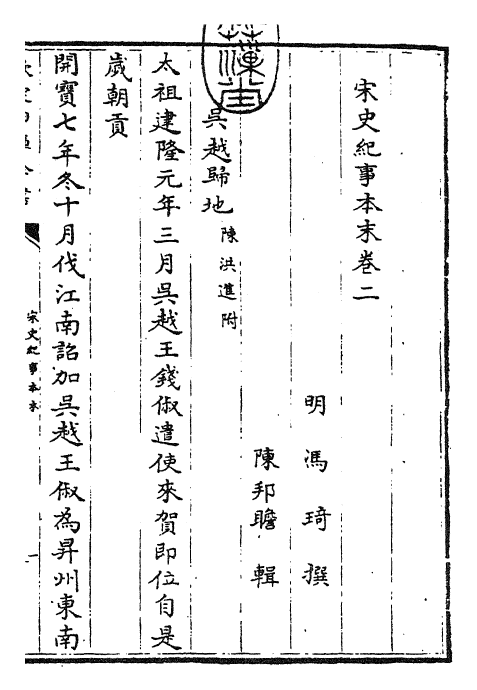 宋史紀事本末卷二
明 馮琦 撰
陳邦瞻 輯
吳越歸地 陳洪進附
太祖建隆元年三月吳越王錢俶遣使來賀即位自是
歲朝貢
開寶七年冬十月伐江南詔加吳越王俶為昇州東南
宋史紀事本末
一